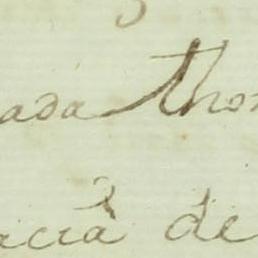 ada Tho
acia de